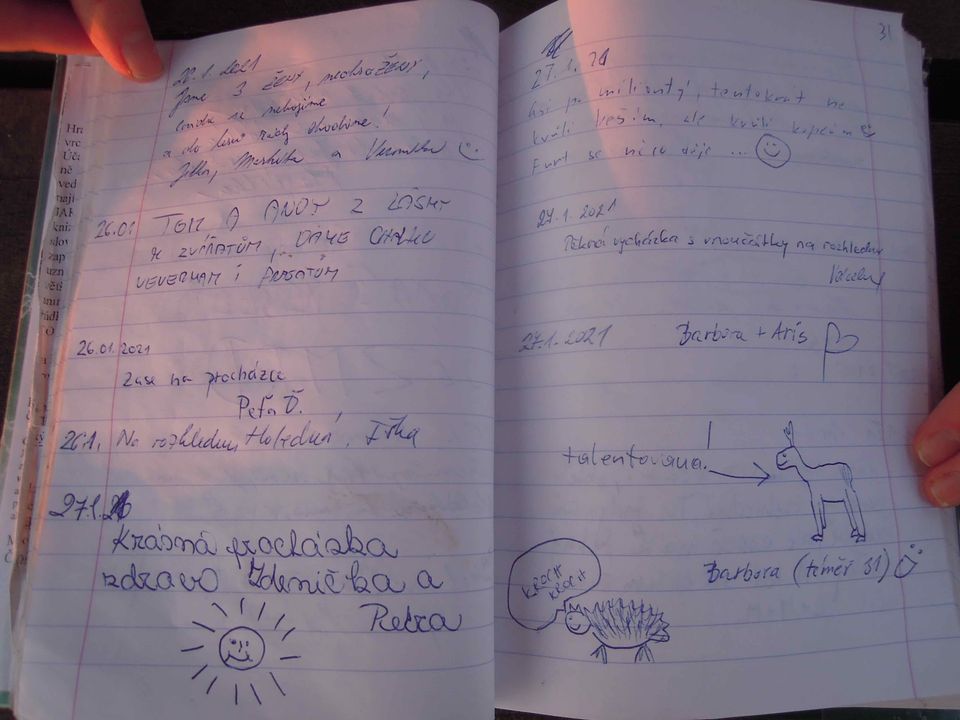 22.1.2021
Jsme 3 ŽENY, neohroŽENY,
se nebojíme
a do lesů rády chodíme!
Jitka, Markéta a Veronika
26.01 TOM A ANDY Z LÁSKY
K ZVÍŘATŮM, DÁME
VEVERKÁM I PTÁKŮM
26.01.2021
Zase na procházce
Peťa Ď.
26.1. Na rozhlednu, Irka
27.1.
Krásná procházka
zdraví Zdenička a
Petra
31
27.1.21
Asi po miliontý, tentokrát ne
kvůli kešim, ale kvůli kopcům
Furt se něco děje...
27.1.2021
Pěkná vycházka s vnoučátky na rozhlednu
27.1.2021 Barbora + Aris
talentovaná.
Barbora (téměř 31)
KROCH
KROCH